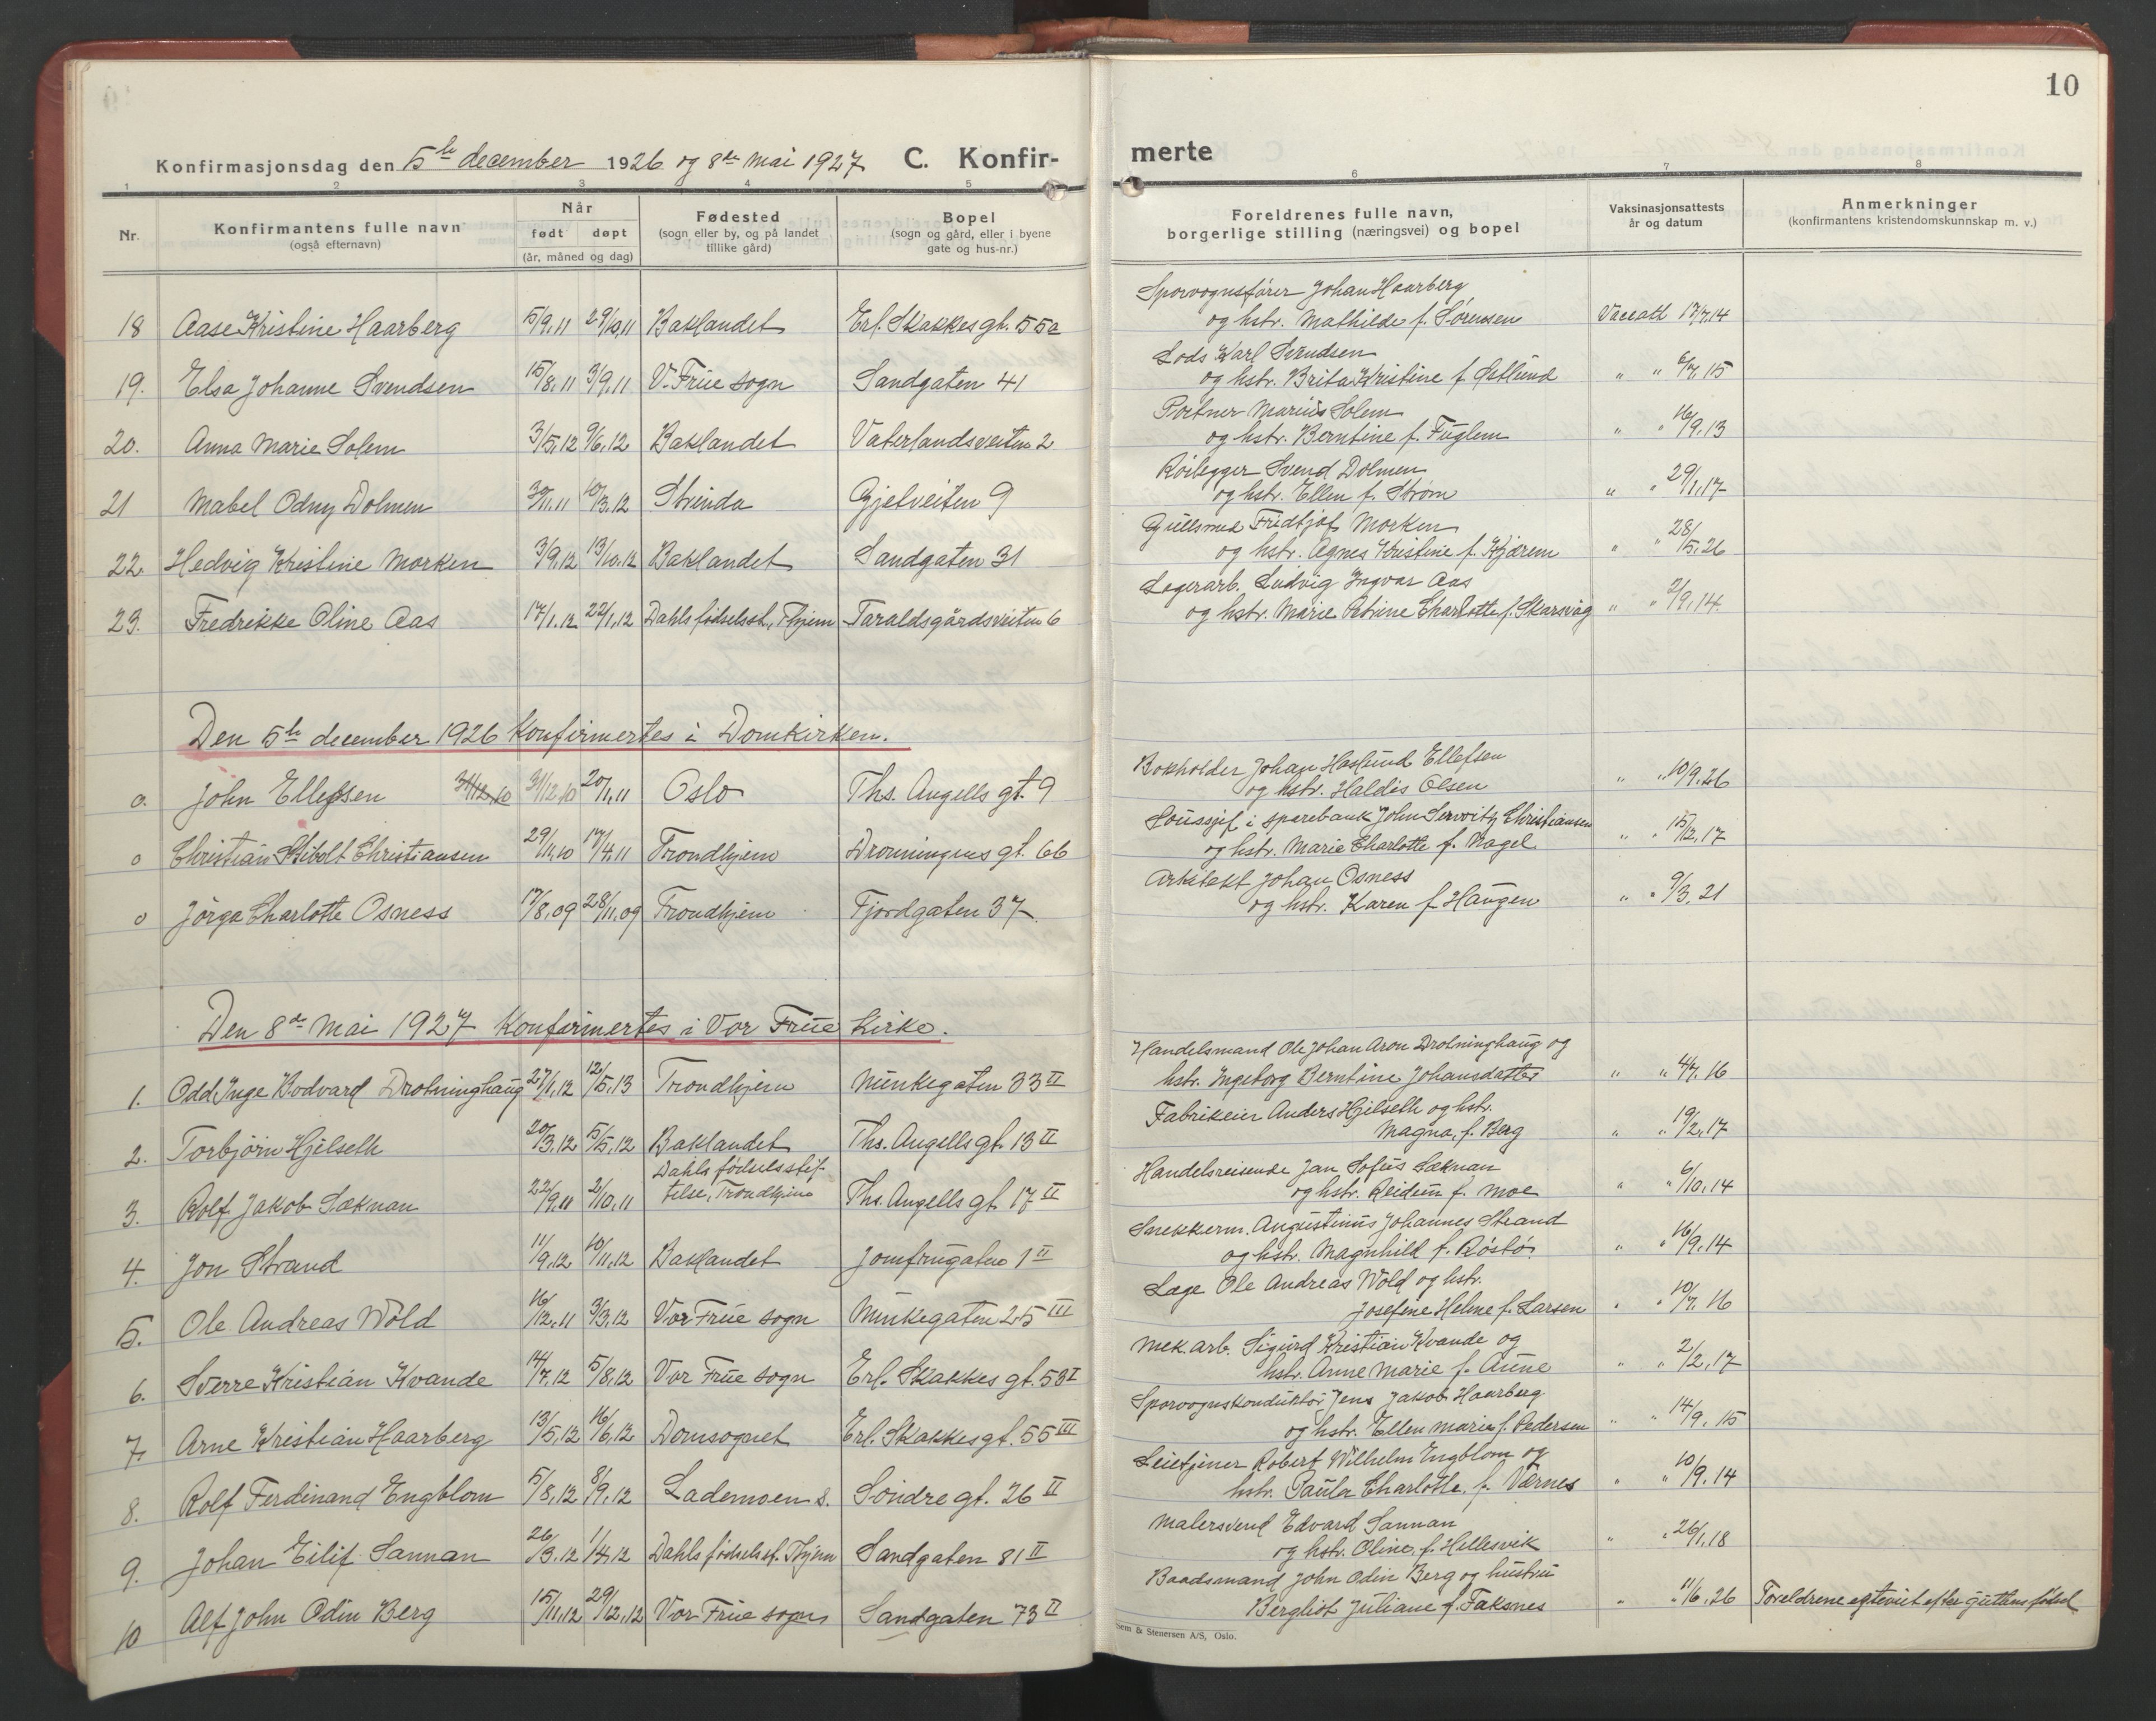 10
Konfirmasjonsdag den 5te december 1926 og 8de mai 1927 C. Konfir-
merte
1 2 3 4 5 6 7 8
Nr. Konfirmantens fulle navn (også efternavn) Når født døpt (år, måned og dag) Fødested (sogn eller by, og på landet tillike gård) Bopel (sogn og gård, eller i byene gate og hus-nr.) Foreldrenes fulle navn, borgerlige stilling (næringsvei) og bopel Vaksinasjonsattests år og datum Anmerkninger (konfirmantens kristendomskunnskap m. v.)
Sporvognsfører Johan Haarberg
18 Aase Kristine Haarberg 5/9.11 29/10.11 Baklandet Erl. Skakkes gt. 55a og hstr. Mathilde f. Sørensen Vaccatt 17/7.14
Lods Karl Svendsen
19. Elsa Johanne Svendsen 15/8.11 3/9.11 V. Frue sogn Sandgaten 41 og hstr. Brita Kristine f. Østlund " " 6/7.15
Portner Marius Solem
20. Anna Marie Solem 3/5.12 9/6.12 Baklandet Vaterlandsveiten 2 og hstr. Berntine f. Fuglem " " 16/9.13
Rørlegger Svend Dolmen
21 Mabel Odny Dolmen 30/11.11 10/3.12 Strinda Gjetveiten 9 og hstr. Ellen f. Strøm " " 29/1.17
Gullsmed Fridtjof Morken
22. Hedvig Kristine Morken 3/9.12 13/10.12 Baklandet Sandgaten 31 og hstr. Agnes Kristine f. Kjærem " " 28/5.26
Lagerarb. Ludvig Ingvar Aas
23. Fredrikke Oline Aas 17/1.12 22/1.12 Dahls fødselsst., Thjem Taraldsgårdsveiten 6 og hstr. Marie Petrine Charlotte f. Skarsvåg " " 2/9.14
Den 5te december 1926 konfirmertes i Domkirken.
Bokholder Johan Haslund Ellefsen
0. John Ellefsen 31/12.10 31/12.10 20/1.11 Oslo Ths. Angells gt. 9 og hstr. Haldis Olsen " " 10/9.26
i sparebank John Christiansen
0 Christian Stibolt Christiansen 29/11.10 17/4.11 Trondhjem Dronningens gt. 66 og hstr. Marie Charlotte f. Nagel " " 15/12.17
Arkitekt Johan Osness
0 Jørga Charlotte Osness 17/8.09 28/11.09 Trondhjem Fjordgaten 37 og hstr. Karen f. Haugen " " 9/3.21
Den 8de mai 1927 konfirmertes i Vor Frue kirke.
Handelsmand Ole Johan Aron Drotninghaug og
1. Odd Inge Bodvard Drotninghaug 27/1.12 12/5.13 Trondhjem Munkegaten 33 II hstr. Ingeborg Berntine Johansdatter " " 4/7.16
Fabrikeier Anders Hjelseth og hstr.
2. Torbjørn Hjelseth 20/3.12 5/5.12 Baklandet Ths. Angells gt. 13 II Magna, f. Berg " " 19/2.17
Dahls fødselsstif- Handelsreisende Jan Sofus Sæknan
3. Rolf Jakob Sæknan 22/9.11 2/10.11 telse, Trondhjem Ths. Angells gt. 17 II og hstr. Reidun f. Moe " " 6/10.14
Snekkerm. Augustinus Johannes Strand
4. Jon Strand 11/9.12 10/11.12 Baklandet Jomfrugaten 1 II og hstr. Magnhild f. Røstø " " 16/9.14
Læge Ole Andreas Wold og hstr.
5. Ole Andreas Wold 16/12.11 3/3.12 Vor Frue sogn Munkegaten 25 III Josefine Helene f. Larsen " " 10/7.16
Mek. arb. Sigurd Kristian Kvande og
6. Sverre Kristian Kvande 14/7.12 5/8.12 Vor Frue sogn Erl. Skakkes gt. 53 I hstr. Anne Marie f. Aune " " 2/2.17
Sporvognskonduktør Jens Jakob Haarberg
7. Arne Kristian Haarberg 13/5.12 16/6.12 Domsognet Erl. Skakkes gt. 55 III og hstr. Ellen Marie f. Pedersen " " 14/9.15
Leietjener Robert Wilhelm Engblom og
8. Rolf Ferdinand Engblom 5/8.12 8/9.12 Lademoen s. Søndre gt. 26 II hstr. Paula Charlotte, f. Værnes " " 10/9.14
Malersvend Edvard Sannan
9. Johan Eilif Sannan 26/3.12 1/4.12 Dahls fødselsst. Thjem Sandgaten 81 II og hstr. Oline, f. Hellesvik " " 26/1.18
Baadsmand John Odin Berg og hustru
10 Alf John Odin Berg 15/11.12 29/12.12 Vor Frue sogn Sandgaten 73 II Bergliot Juliane f. Faksnes " " 11/6.26 Foreldrene egteviet efter guttens fødsel
sem & Stenersen A/S, Oslo.